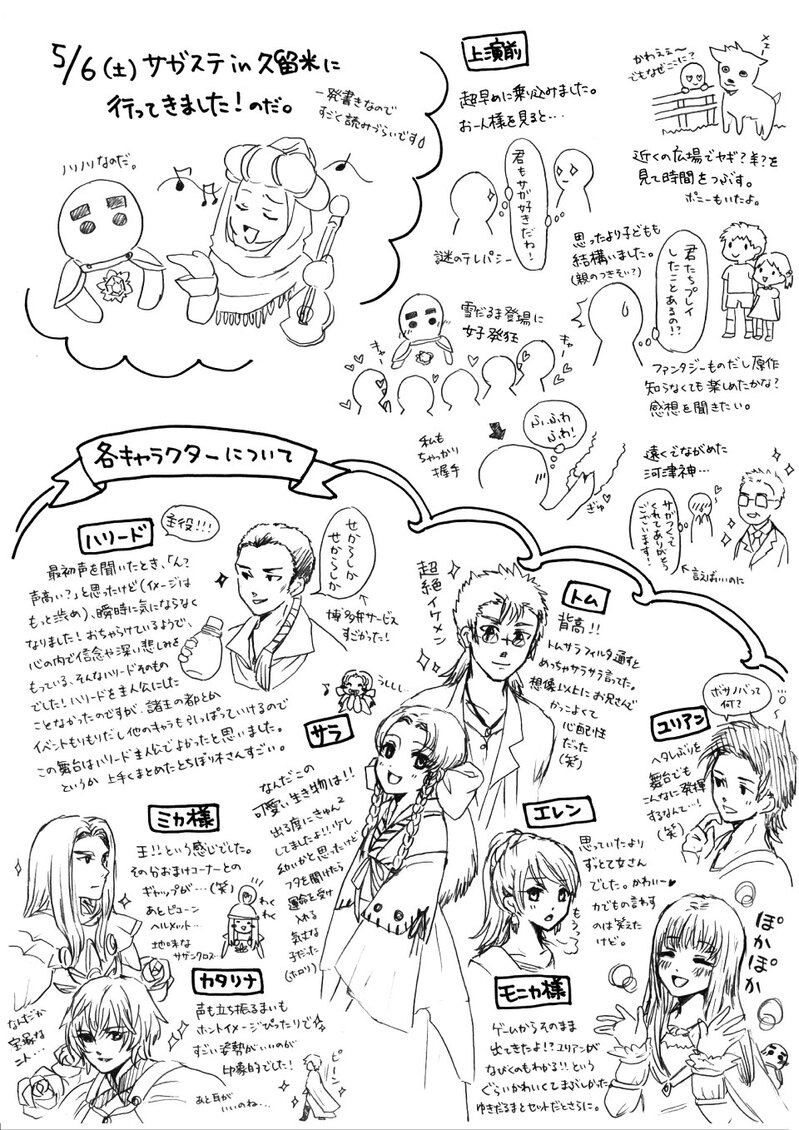 5/6(土)サガステin久留米に
行ってきました!のだ。
一発書きなので
すごく読みづらいです
ハリハリなのだ。
上演前
超早めに乗り込みました。
お一人様を見ると…
君もサガ好きだわ!
謎のテレパシー
かわええ〜
でもなぜここに?
メェー
近くの広場でヤギ?羊?を
見て時間をつぶす。
ポニーもいたよ。
思ったより子どもも
結構いました。
(親のつきそい?)
君たちプレイ
したことあるの!?
ファンタジーものだし原作
知らなくても楽しめたかな?
感想を聞きたい。
雪だるま登場に
女子発狂
キャー
キャー
私も
ちゃっかり
握手
ふぃふわ
ふわ!
ぎゅ
遠くでながめた
河津神…
サガつくって
くれてありがとう
ございます!
言えばいいのに
各キャラクターについて
ハリード
主役!!!
最初声を聞いたとき、「ん?
声高い?」と思ったけど(イメージは
もっと渋め)、瞬時に気にならなく
なりました!おちゃらけているようで、
心の内で信念や深い悲しみを
もっている、そんなハリードそのもの
でした!ハリードを主人公にした
ことなかったのですが、諸王の都とか
イベントもりもりだし他のキャラもひっぱっていけるので
この舞台はハリード主人公でよかったと思いました。
というか 上手くまとめたとちぼり木さんすごい。
せからしか
せからしか
博多弁サービス
すごかった!
超絶イケメン
トム
背高!!
トムサラフィルタ通すと
めっちゃサラサラ言ってた。
想像以上にお兄さんで
かっこよくて
心配性
だった
(笑)
うししし
サラ
なんだこの
可愛い生き物は!!
出る度にきゅんきゅん
してましたよ!!少し
幼いかと思ったけど
フタを開けたら
運命を受け
入れる
気丈な
子だった
(ホロリ)
ユリアン
ボサノバって
何?
ヘタレぶりを
舞台でも
こんなに発揮
するなんて…!
(笑)
エレン
思っていたより
ずっと乙女さん
でした。かわいー
力でもの言わす
のは笑えた
けど。
もうっ
ミカ様
王!!という感じでした。
その分おまけコーナーとの
ギャップが…(笑)
あとピコーン
ヘルメット…
地味な
サザンクロス…
わくわく
カタリナ
声も立ち振るまいも
ホントイメージぴったりで
すごい姿勢がいいのが
印象的でした!
あと耳が
いいのね…
ピーン
なんだか
宝塚な
ニト…
モニカ様
ゲームからそのまま
出てきたよ!?ユリアンが
なびくのもわかる!!という
ぐらいかわいくてまぶしかった。
ゆきだるまとセットだとさらに。
ぽかぽか